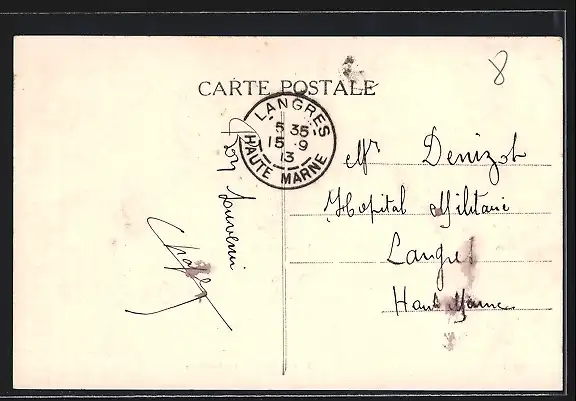 8
CARTE POSTALE
LANGRES
5 35
15 9
13
HAUTE MARNE
Bon souvenir
Mr Denizot
Hopital Militaire
Langres
Haute Marne